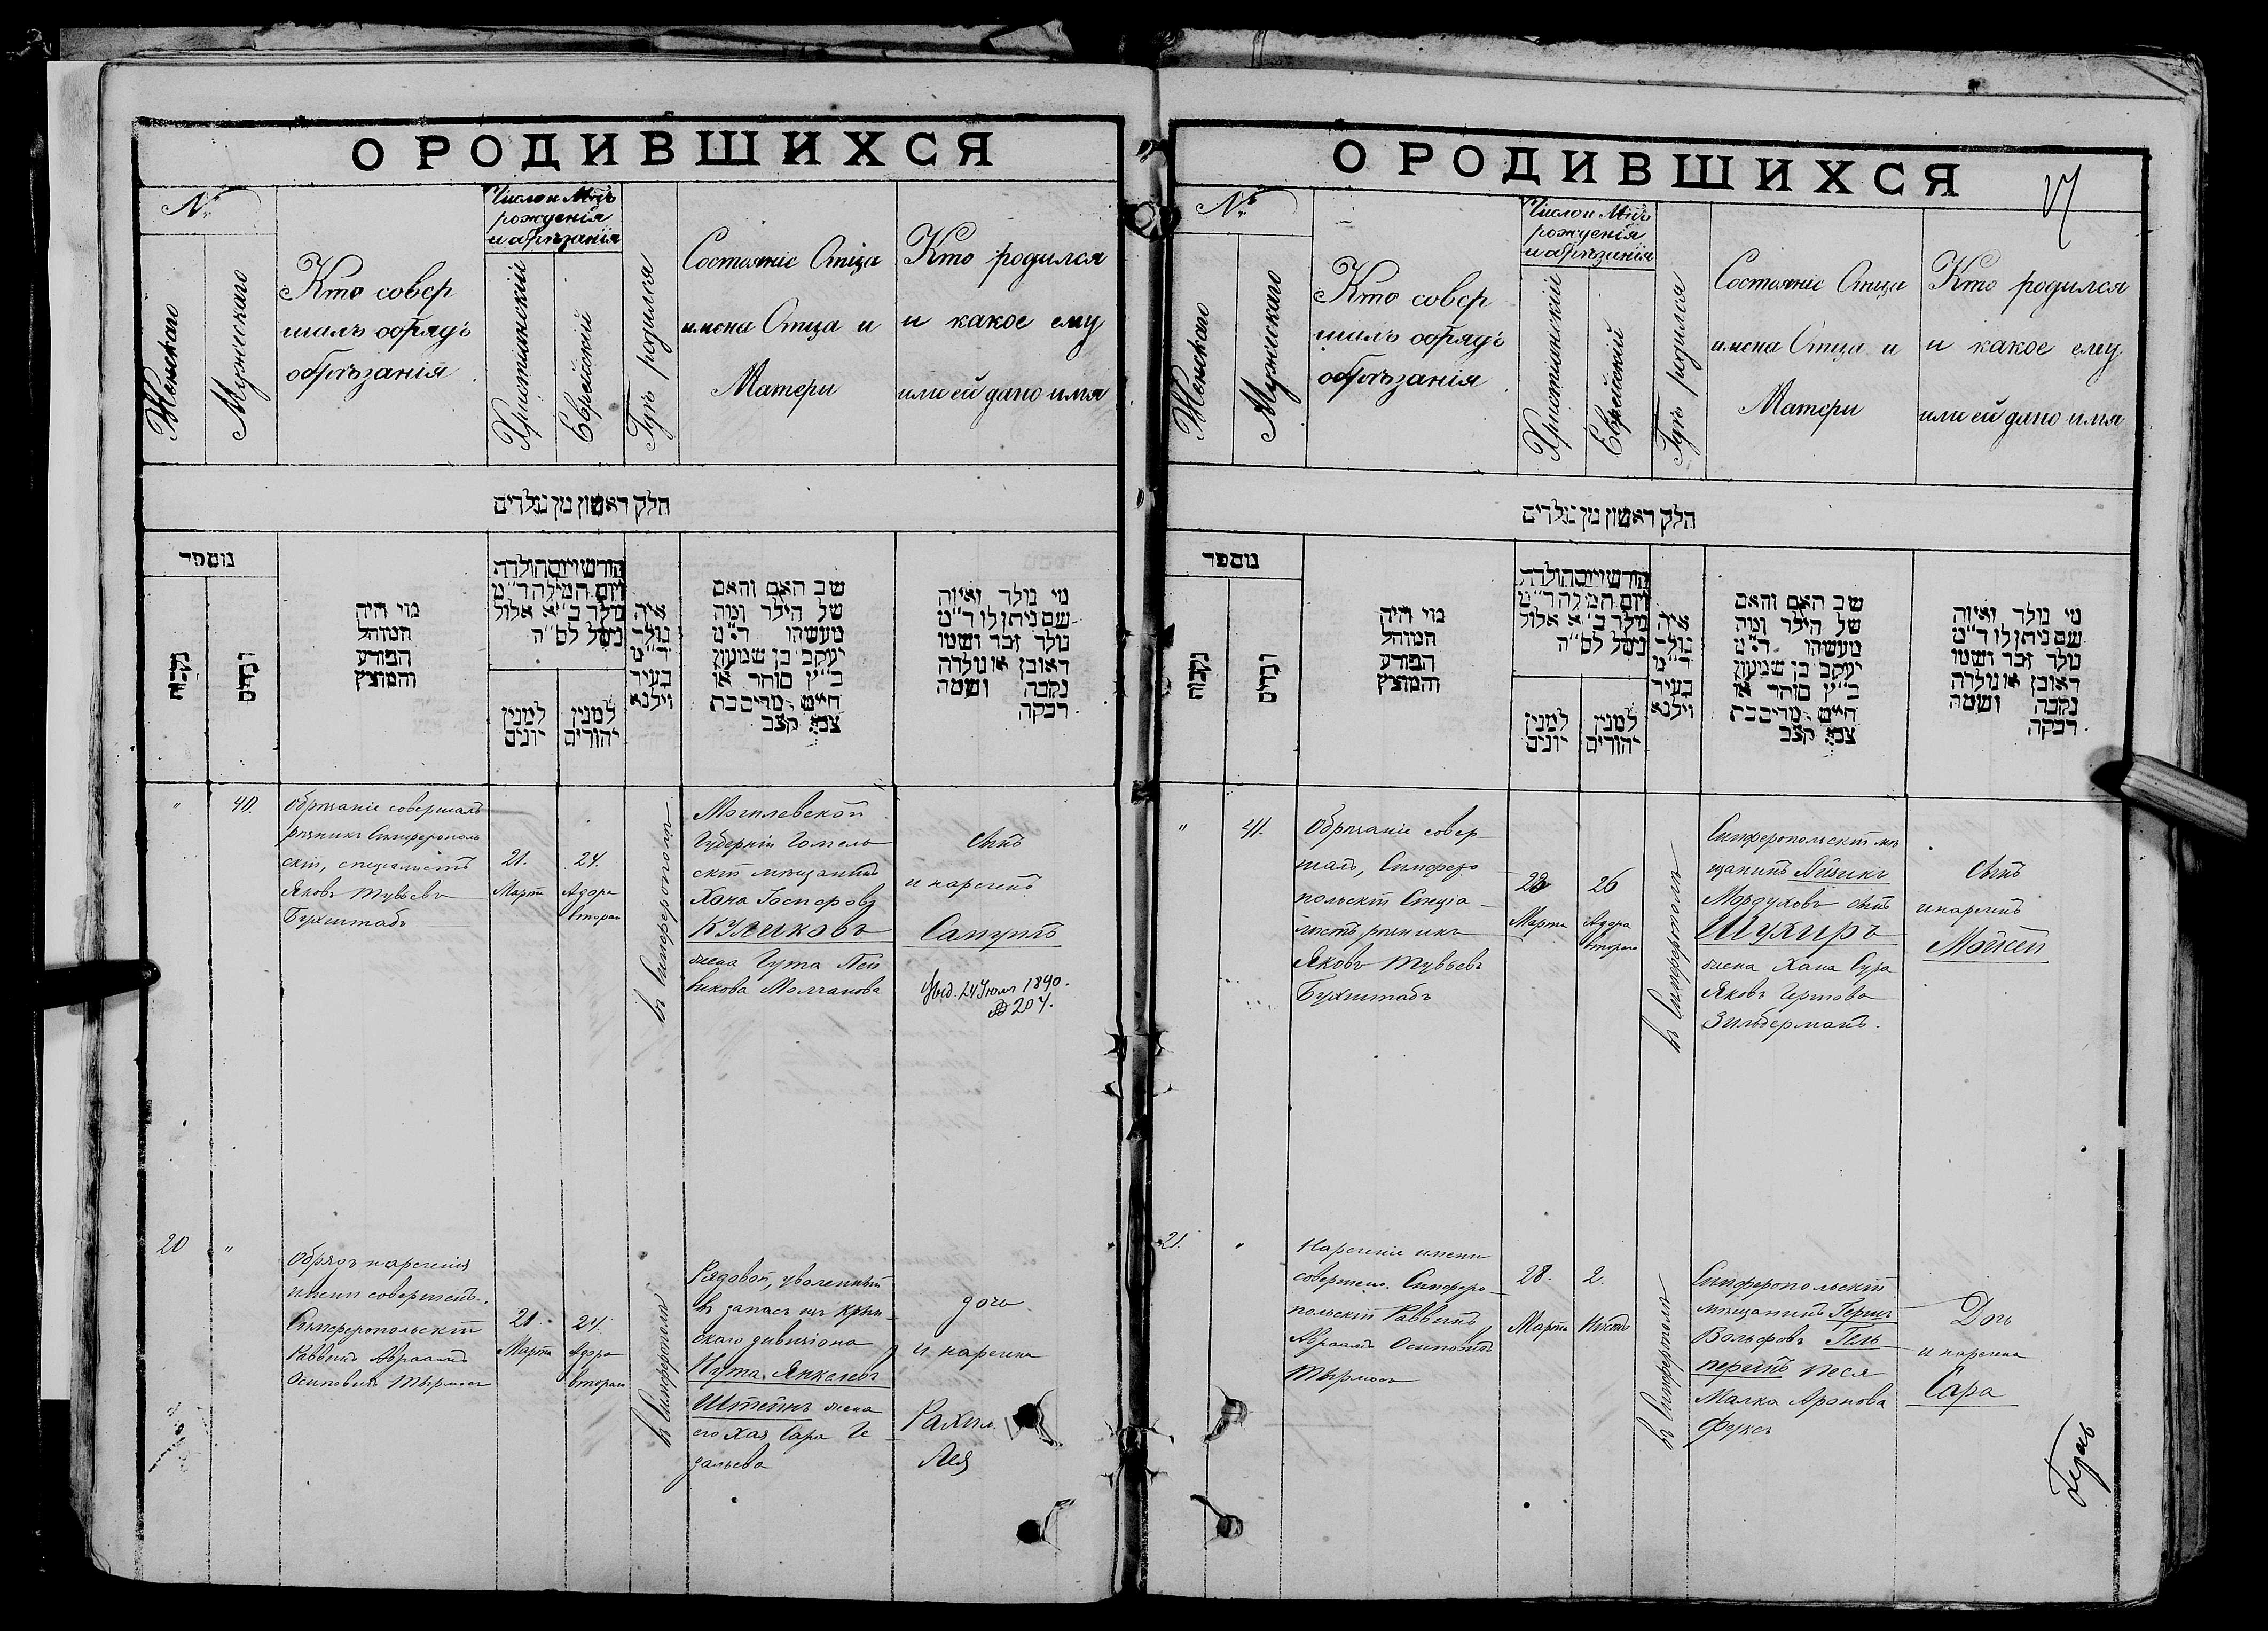 О РОДИВШИХСЯ
№
Женскаго
Мужескаго
Кто совер
шалъ обрядъ
обрѣзанія
Число и Мѣц.
рожденія
и обрѣзанія
Христіанскій
Еврейскій
Гдѣ родился
Состояніе Отца
имена Отца и
Матери
Кто родился
и какое ему
или ей дано имя
חלק ראשון מן נולדים
נוספר
נקבות
זכרים
מי היה
המוהל
הפורע
והמוצץ
חודש ויום הולדה
ויום המילה ד"מ
נולד ב"א אלול
נימל לס"ה
למנין
יונים
למנין
יהודים
איה
נולד
ד"מ
בעיר
וילנא
שב האם והאם
של הילד ומה
מעשהו ד"מ
יעקב בן שמעון
ב"ין סוחר או
חיים מרים בת
צבי קצב
מי נולד ואיזה
שם ניתן לו ד"מ
נולד זכר ושמו
ראובן או נולדה
נקבה ושמה
רבקה
"
40.
Обрѣзаніе совершалъ
рѣзникъ Симферополь
скій, спеціалистъ
Яковъ Тувьевъ
Бухштабъ
21.
Марта
24.
Адора
втораго
въ Симферополѣ
Могилевской
Губерніи Гомель
скій мѣщанинъ
Хона Іосифовъ
Куликовъ
жена Гута Лей
бикова Молчанова
Сынъ
и нареченъ
Самуилъ
Выд. 24 Юля 1890.
№ 204.
20
"
Обрядъ нареченія
имени совершенъ.
Симферопольскій
Раввинъ Авраамъ
Осиповичъ Тырмосъ
21.
Марта
24.
Адора
втораго
въ Симферополѣ
Рядовой, уволенный
въ запасъ изъ Крым
скаго дивизіона
Нута Янкелевъ
Штейнъ жена
его Хая Сара Ге
дальева
дочь
и наречена
Рахиль
Лея
О РОДИВШИХСЯ
№
Женскаго
Мужескаго
Кто совер
шалъ обрядъ
обрѣзанія
Число и Мѣц.
рожденія
и обрѣзанія
Христіанскій
Еврейскій
Гдѣ родился
Состояніе Отца
имена Отца и
Матери
Кто родился
и какое ему
или ей дано имя
חלק ראשון מן נולדים
נוספר
נקבות
זכרים
מי היה
המוהל
הפורע
והמוצץ
חודש ויום הולדה
ויום המילה ד"מ
נולד ב"א אלול
נימל לס"ה
למנין
יונים
למנין
יהודים
איה
נולד
ד"מ
בעיר
וילנא
שב האם והאם
של הילד ומה
מעשהו ד"מ
יעקב בן שמעון
ב"ין סוחר או
חיים מרים בת
צבי קצב
מי נולד ואיזה
שם ניתן לו ד"מ
נולד זכר ושמו
ראובן או נולדה
נקבה ושמה
רבקה
"
41.
Обрѣзаніе совер-
шалъ, Симферо
польскій Спеціа-
листъ рѣзникъ
Яковъ Тувьевъ
Бухштабъ
23
Марта
26
Адора
втораго
въ Симферополѣ
Симферопольскій мѣ
щанинъ Айзикъ
Мордуховъ сынъ
Шухиръ
жена Хана Сура
Яковъ Гершова
Зильберманъ.
Сынъ
и нареченъ
Мойсей
21.
"
Нареченіе имени
совершено. Симферо-
польскій Раввинъ
Авраамъ Осиповичъ
Тырмосъ
28.
Марта
2.
Нисонъ
въ Симферополѣ
Симферопольскій
мѣщанинъ Гершъ
Вольфовъ Галь
перинъ Песя
Малка Аронова
Фуксъ
Дочь
и наречена
Сара